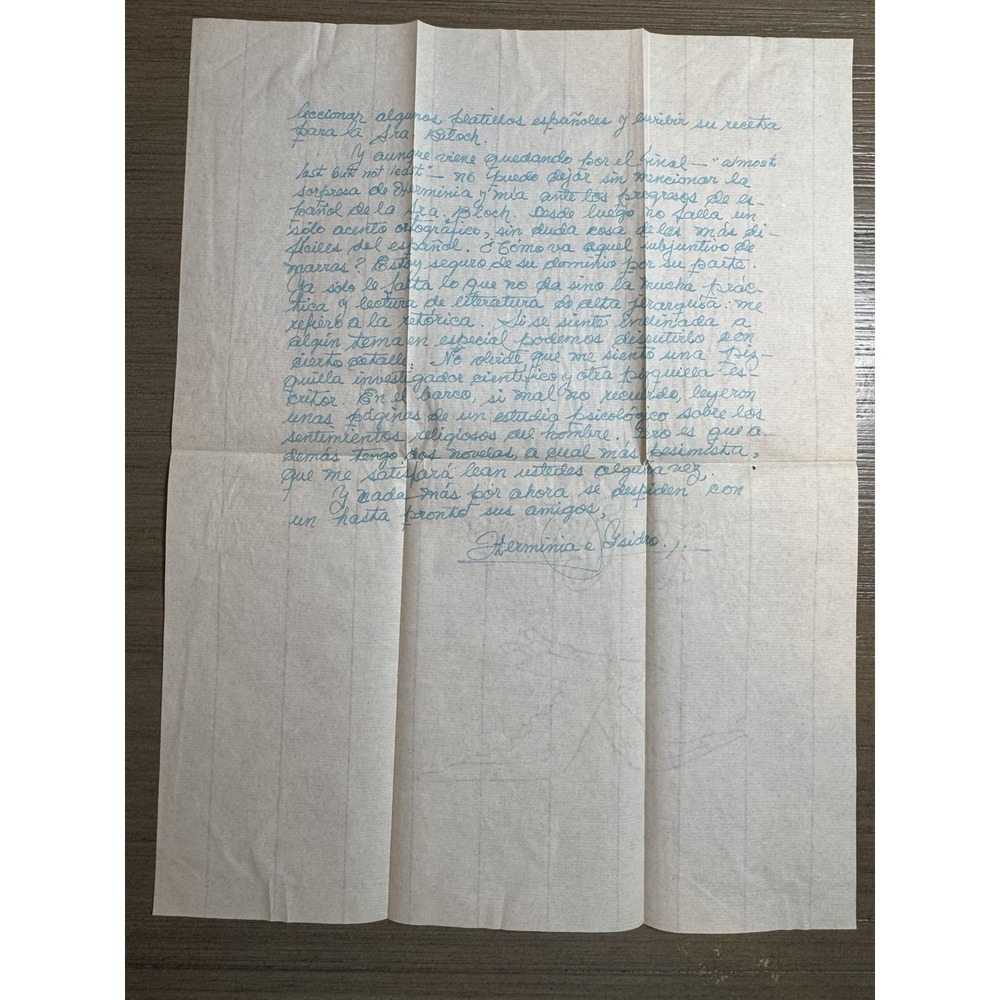 leccionar algunos platillos españoles y escribir su receta
para la Sra. Bloch.
Y aunque viene quedando por el final — "almost
last but not least" — no puedo dejar sin mencionar la
sorpresa de Herminia y mía ante los progresos de es-
pañol de la Sra. Bloch. Desde luego no falla un
sólo acento ortográfico, sin duda cosa de las más di-
fíciles del español. ¿Cómo va aquel subjuntivo de
marras? Estoy seguro de su dominio por su parte.
Ya sólo le falta lo que no da sino la mucha prác-
tica y lectura de literatura de alta jerarquía: me
refiero a la retórica. Si se siente inclinada a
algún tema en especial podemos discutirlo con
cierto detalle. No olvide que me siento una piz-
quilla investigador científico y otra pizquilla es-
critor. En el barco, si mal no recuerdo, leyeron
unas páginas de un estudio psicológico sobre los
sentimientos religiosos del hombre. Pero es que a-
demás tengo dos novelas, a cual más pesimista,
que me satisfará lean ustedes alguna vez.
Y nada más por ahora se despiden con
un hasta pronto sus amigos,
Herminia e Ysidro.